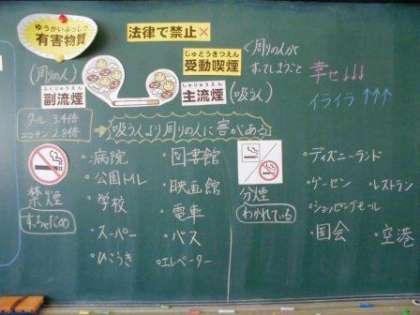 ゆうがいぶっしつ
有害物質
法律で禁止×
じゅどうきつえん
受動喫煙
＜周りの人が
すってしまうこと
幸せ↓↓↓
イライラ↑↑↑
(周りの人)
ふくりゅうえん
副流煙
しゅりゅうえん
主流煙
(吸う人)
タール 3.4倍
ニコチン 2.8倍
吸う人より周りの人に害がある
禁煙
すっちゃだめ
・病院
・公園
・学校
・スーパー
・ひこうき
・図書館
・映画館
・電車
・バス
・エレベーター
分煙
わかれている
・ディズニーランド
・ゲーセン
・レストラン
・ショッピングモール
・国会
・空港